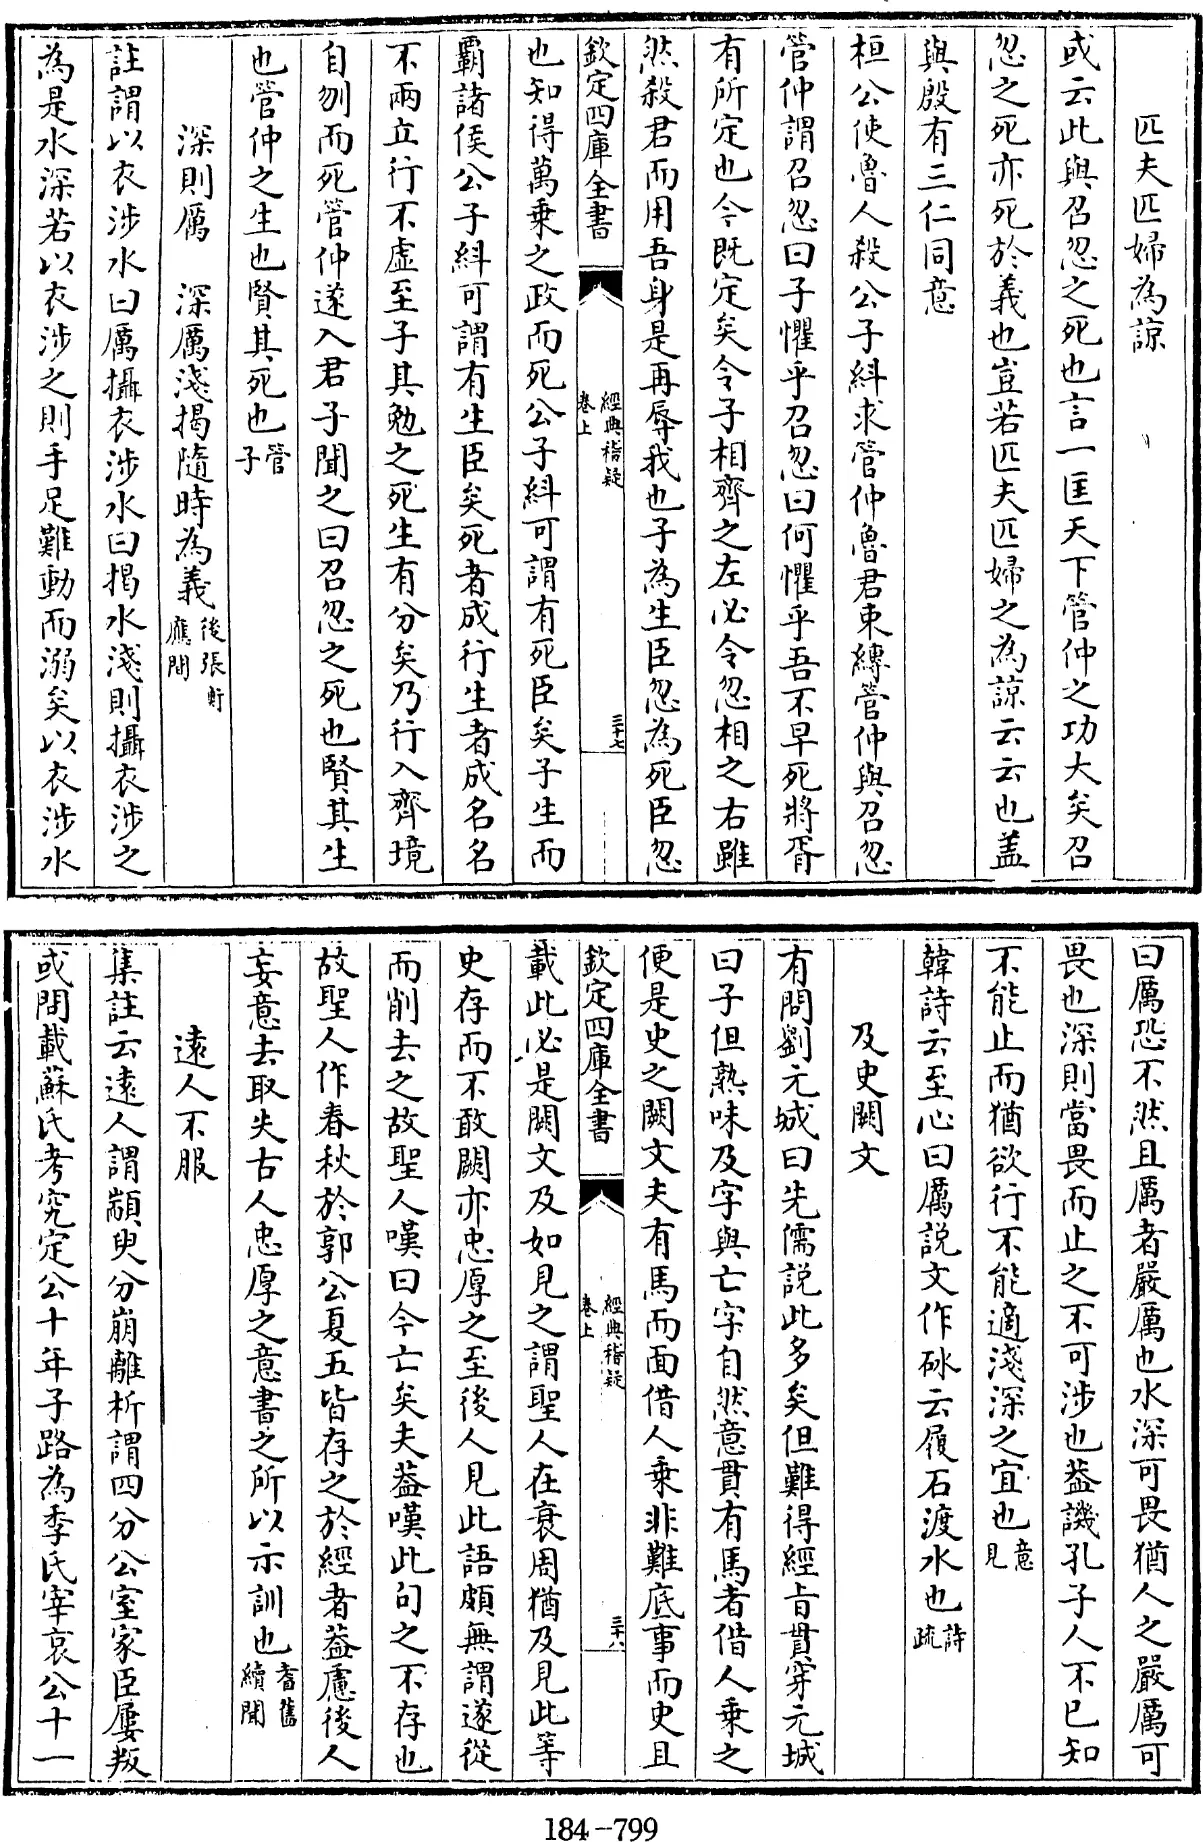 匹夫匹婦為諒
或云此與召忽之死也言一匡天下管仲之功大矣召
忽之死亦死於義也豈若匹夫匹婦之為諒云云也盖
與殷有三仁同意
桓公使魯人殺公子糾求管仲魯君束縛管仲與召忽
管仲謂召忽曰子懼乎召忽曰何懼乎吾不早死將胥
有所定也今既定矣令子相齊之左必令忽相之右雖
然殺君而用吾身是再辱我也子為生臣忽為死臣忽
欽定四庫全書
經典稽疑
卷上
三十七
也知得萬乘之政而死公子糾可謂有死臣矣子生而
霸諸侯公子糾可謂有生臣矣死者成行生者成名名
不兩立行不虛至子其勉之死生有分矣乃行入齊境
自刎而死管仲遂入君子聞之曰召忽之死也賢其生
也管仲之生也賢其死也管子
深則厲　深厲淺揭隨時為義後張衡應間
註謂以衣涉水曰厲攝衣涉水曰揭水淺則攝衣涉之
為是水深若以衣涉之則手足難動而溺矣以衣涉水
曰厲恐不然且厲者嚴厲也水深可畏猶人之嚴厲可
畏也深則當畏而止之不可涉也葢譏孔子人不已知
不能止而猶欲行不能適淺深之宜也意見
韓詩云至心曰厲説文作砅云履石渡水也詩疏
及史闕文
有問劉元城曰先儒説此多矣但難得經旨貫穿元城
曰子但熟味及字與亡字自然意貫有馬者借人乘之
便是史之闕文夫有馬而面借人乘非難底事而史且
欽定四庫全書
經典稽疑
卷上
三十八
載此必是闕文及如見之謂聖人在衰周猶及見此等
史存而不敢闕亦忠厚之至後人見此語頗無謂遂從
而削去之故聖人嘆曰今亡矣夫葢嘆此句之不存也
故聖人作春秋於郭公夏五皆存之於經者葢慮後人
妄意去取失古人忠厚之意書之所以示訓也耆舊續聞
遠人不服
集註云遠人謂顓臾分崩離析謂四分公室家臣屢叛
或問載蘇氏考究定公十年子路為季氏宰哀公十一
184-799